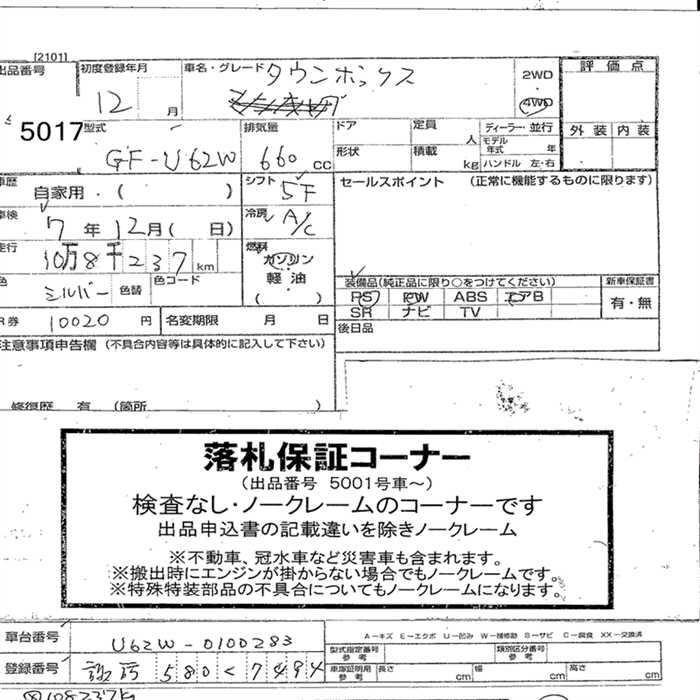 [2101]
出品番号 初度登録年月 車名・グレード タウンボックス 2WD 評価点
12 月 4WD
5017 型式 排気量 ドア 定員 人 ディーラー・並行 外装 内装
モデル年式 年
GF-U62W 660 cc 形状 積載 kg ハンドル 左・右
車歴 自家用・( ) シフト 5F セールスポイント (正常に機能するものに限ります)
車検 7年12月( 日) 冷房 A/C
走行 10万8千237 km 燃料 ガソリン
軽油
( )
色 シルバー 色替 色コード 装備品(純正品に限り○をつけてください) 新車保証書
PS PW ABS エアB 有・無
SR ナビ TV
R券 10020 円 名変期限 月 日 後日品
注意事項申告欄 (不具合内容等は具体的に記入して下さい)
修復歴 有 (箇所 )
落札保証コーナー
(出品番号 5001号車~)
検査なし・ノークレームのコーナーです
出品申込書の記載違いを除きノークレーム
※不動車、冠水車など災害車も含まれます。
※搬出時にエンジンが掛からない場合でもノークレームです。
※特殊特装部品の不具合についてもノークレームになります。
車台番号 U62W-0100283 A-キズ E-エクボ U-凹み W-補修跡 S-サビ C-腐食 XX-交換済
型式指定番号 参考 類別区分番号 参考
登録番号 諏訪 580 く 7494 車庫証明用 参考 長さ cm 幅 cm 高さ cm
108237K